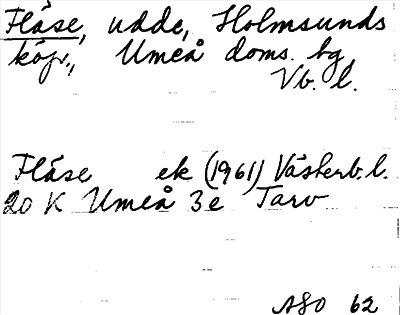 Fläse, udde, Holmsunds
köp., Umeå doms. hg
Vb. l.
Fläse ek (1961) Västerb. l.
20 K Umeå 3e Tarv
ASO 62